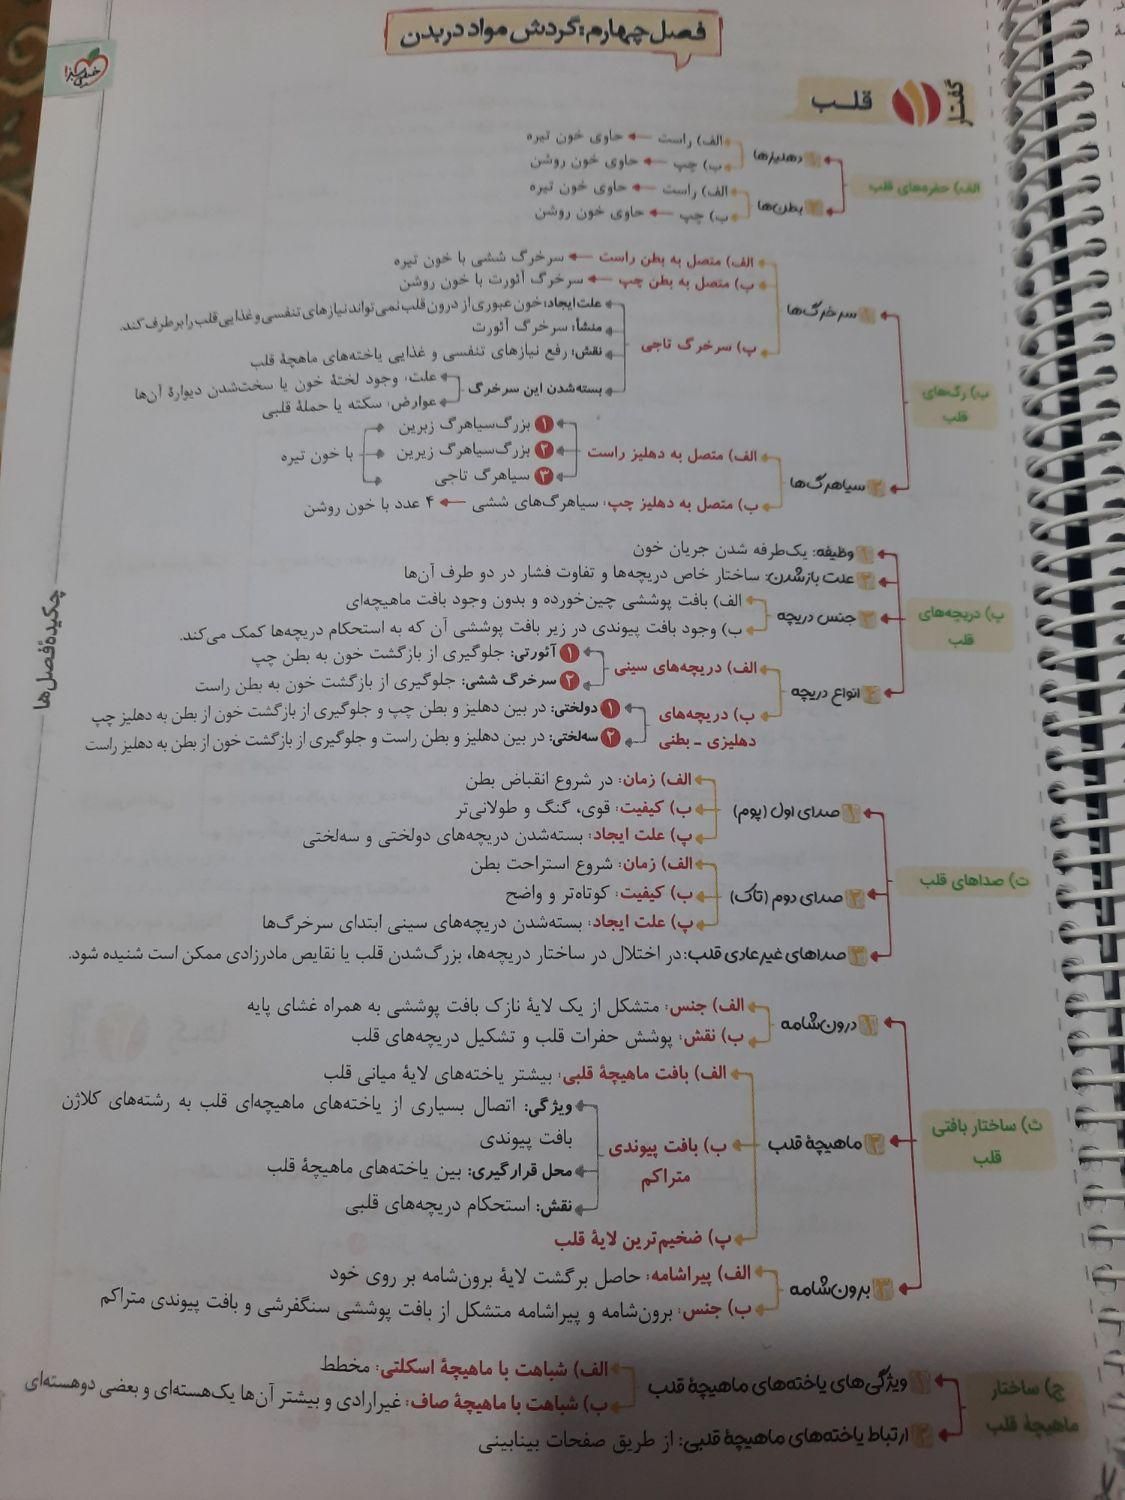 فصل چهارم: گردش مواد در بدن
خیلی سبز
گفتار ۱ قلب
الف) حفره‌های قلب
۱ دهلیزها
الف) راست ← حاوی خون تیره
ب) چپ ← حاوی خون روشن
۲ بطن‌ها
الف) راست ← حاوی خون تیره
ب) چپ ← حاوی خون روشن
ب) رگ‌های قلب
۱ سرخرگ‌ها
الف) متصل به بطن راست ← سرخرگ ششی با خون تیره
ب) متصل به بطن چپ ← سرخرگ آئورت با خون روشن
پ) سرخرگ تاجی
علت ایجاد: خون عبوری از درون قلب نمی‌تواند نیازهای تنفسی و غذایی قلب را برطرف کند.
منشأ: سرخرگ آئورت
نقش: رفع نیازهای تنفسی و غذایی یاخته‌های ماهچهٔ قلب
بسته‌شدن این سرخرگ
علت: وجود لختهٔ خون یا سخت‌شدن دیوارهٔ آن‌ها
عوارض: سکته یا حملهٔ قلبی
۲ سیاهرگ‌ها
الف) متصل به دهلیز راست
۱ بزرگ‌سیاهرگ زبرین
۲ بزرگ‌سیاهرگ زیرین
۳ سیاهرگ تاجی
با خون تیره
ب) متصل به دهلیز چپ: سیاهرگ‌های ششی ← ۴ عدد با خون روشن
پ) دریچه‌های قلب
۱ وظیفه: یک‌طرفه شدن جریان خون
۲ علت بازشدن: ساختار خاص دریچه‌ها و تفاوت فشار در دو طرف آن‌ها
۳ جنس دریچه
الف) بافت پوششی چین‌خورده و بدون وجود بافت ماهیچه‌ای
ب) وجود بافت پیوندی در زیر بافت پوششی آن که به استحکام دریچه‌ها کمک می‌کند.
۴ انواع دریچه
الف) دریچه‌های سینی
۱ آئورتی: جلوگیری از بازگشت خون به بطن چپ
۲ سرخرگ ششی: جلوگیری از بازگشت خون به بطن راست
ب) دریچه‌های دهلیزی ـ بطنی
۱ دولختی: در بین دهلیز و بطن چپ و جلوگیری از بازگشت خون از بطن به دهلیز چپ
۲ سه‌لختی: در بین دهلیز و بطن راست و جلوگیری از بازگشت خون از بطن به دهلیز راست
ت) صداهای قلب
۱ صدای اول (پوم)
الف) زمان: در شروع انقباض بطن
ب) کیفیت: قوی، گنگ و طولانی‌تر
پ) علت ایجاد: بسته‌شدن دریچه‌های دولختی و سه‌لختی
۲ صدای دوم (تاک)
الف) زمان: شروع استراحت بطن
ب) کیفیت: کوتاه‌تر و واضح
پ) علت ایجاد: بسته‌شدن دریچه‌های سینی ابتدای سرخرگ‌ها
۳ صداهای غیرعادی قلب: در اختلال در ساختار دریچه‌ها، بزرگ‌شدن قلب یا نقایص مادرزادی ممکن است شنیده شود.
ث) ساختار بافتی قلب
۱ درون‌شامه
الف) جنس: متشکل از یک لایهٔ نازک بافت پوششی به همراه غشای پایه
ب) نقش: پوشش حفرات قلب و تشکیل دریچه‌های قلب
۲ ماهیچهٔ قلب
الف) بافت ماهیچهٔ قلبی: بیشتر یاخته‌های لایهٔ میانی قلب
ب) بافت پیوندی متراکم
ویژگی: اتصال بسیاری از یاخته‌های ماهیچه‌ای قلب به رشته‌های کلاژن
بافت پیوندی
محل قرارگیری: بین یاخته‌های ماهیچهٔ قلب
نقش: استحکام دریچه‌های قلبی
پ) ضخیم‌ترین لایهٔ قلب
۳ برون‌شامه
الف) پیراشامه: حاصل برگشت لایهٔ برون‌شامه بر روی خود
ب) جنس: برون‌شامه و پیراشامه متشکل از بافت پوششی سنگفرشی و بافت پیوندی متراکم
ج) ساختار ماهیچهٔ قلب
۱ ویژگی‌های یاخته‌های ماهیچهٔ قلب
الف) شباهت با ماهیچهٔ اسکلتی: مخطط
ب) شباهت با ماهیچهٔ صاف: غیرارادی و بیشتر آن‌ها یک‌هسته‌ای و بعضی دوهسته‌ای
۲ ارتباط یاخته‌های ماهیچهٔ قلبی: از طریق صفحات بینابینی
چکیدهٔ فصل‌ها